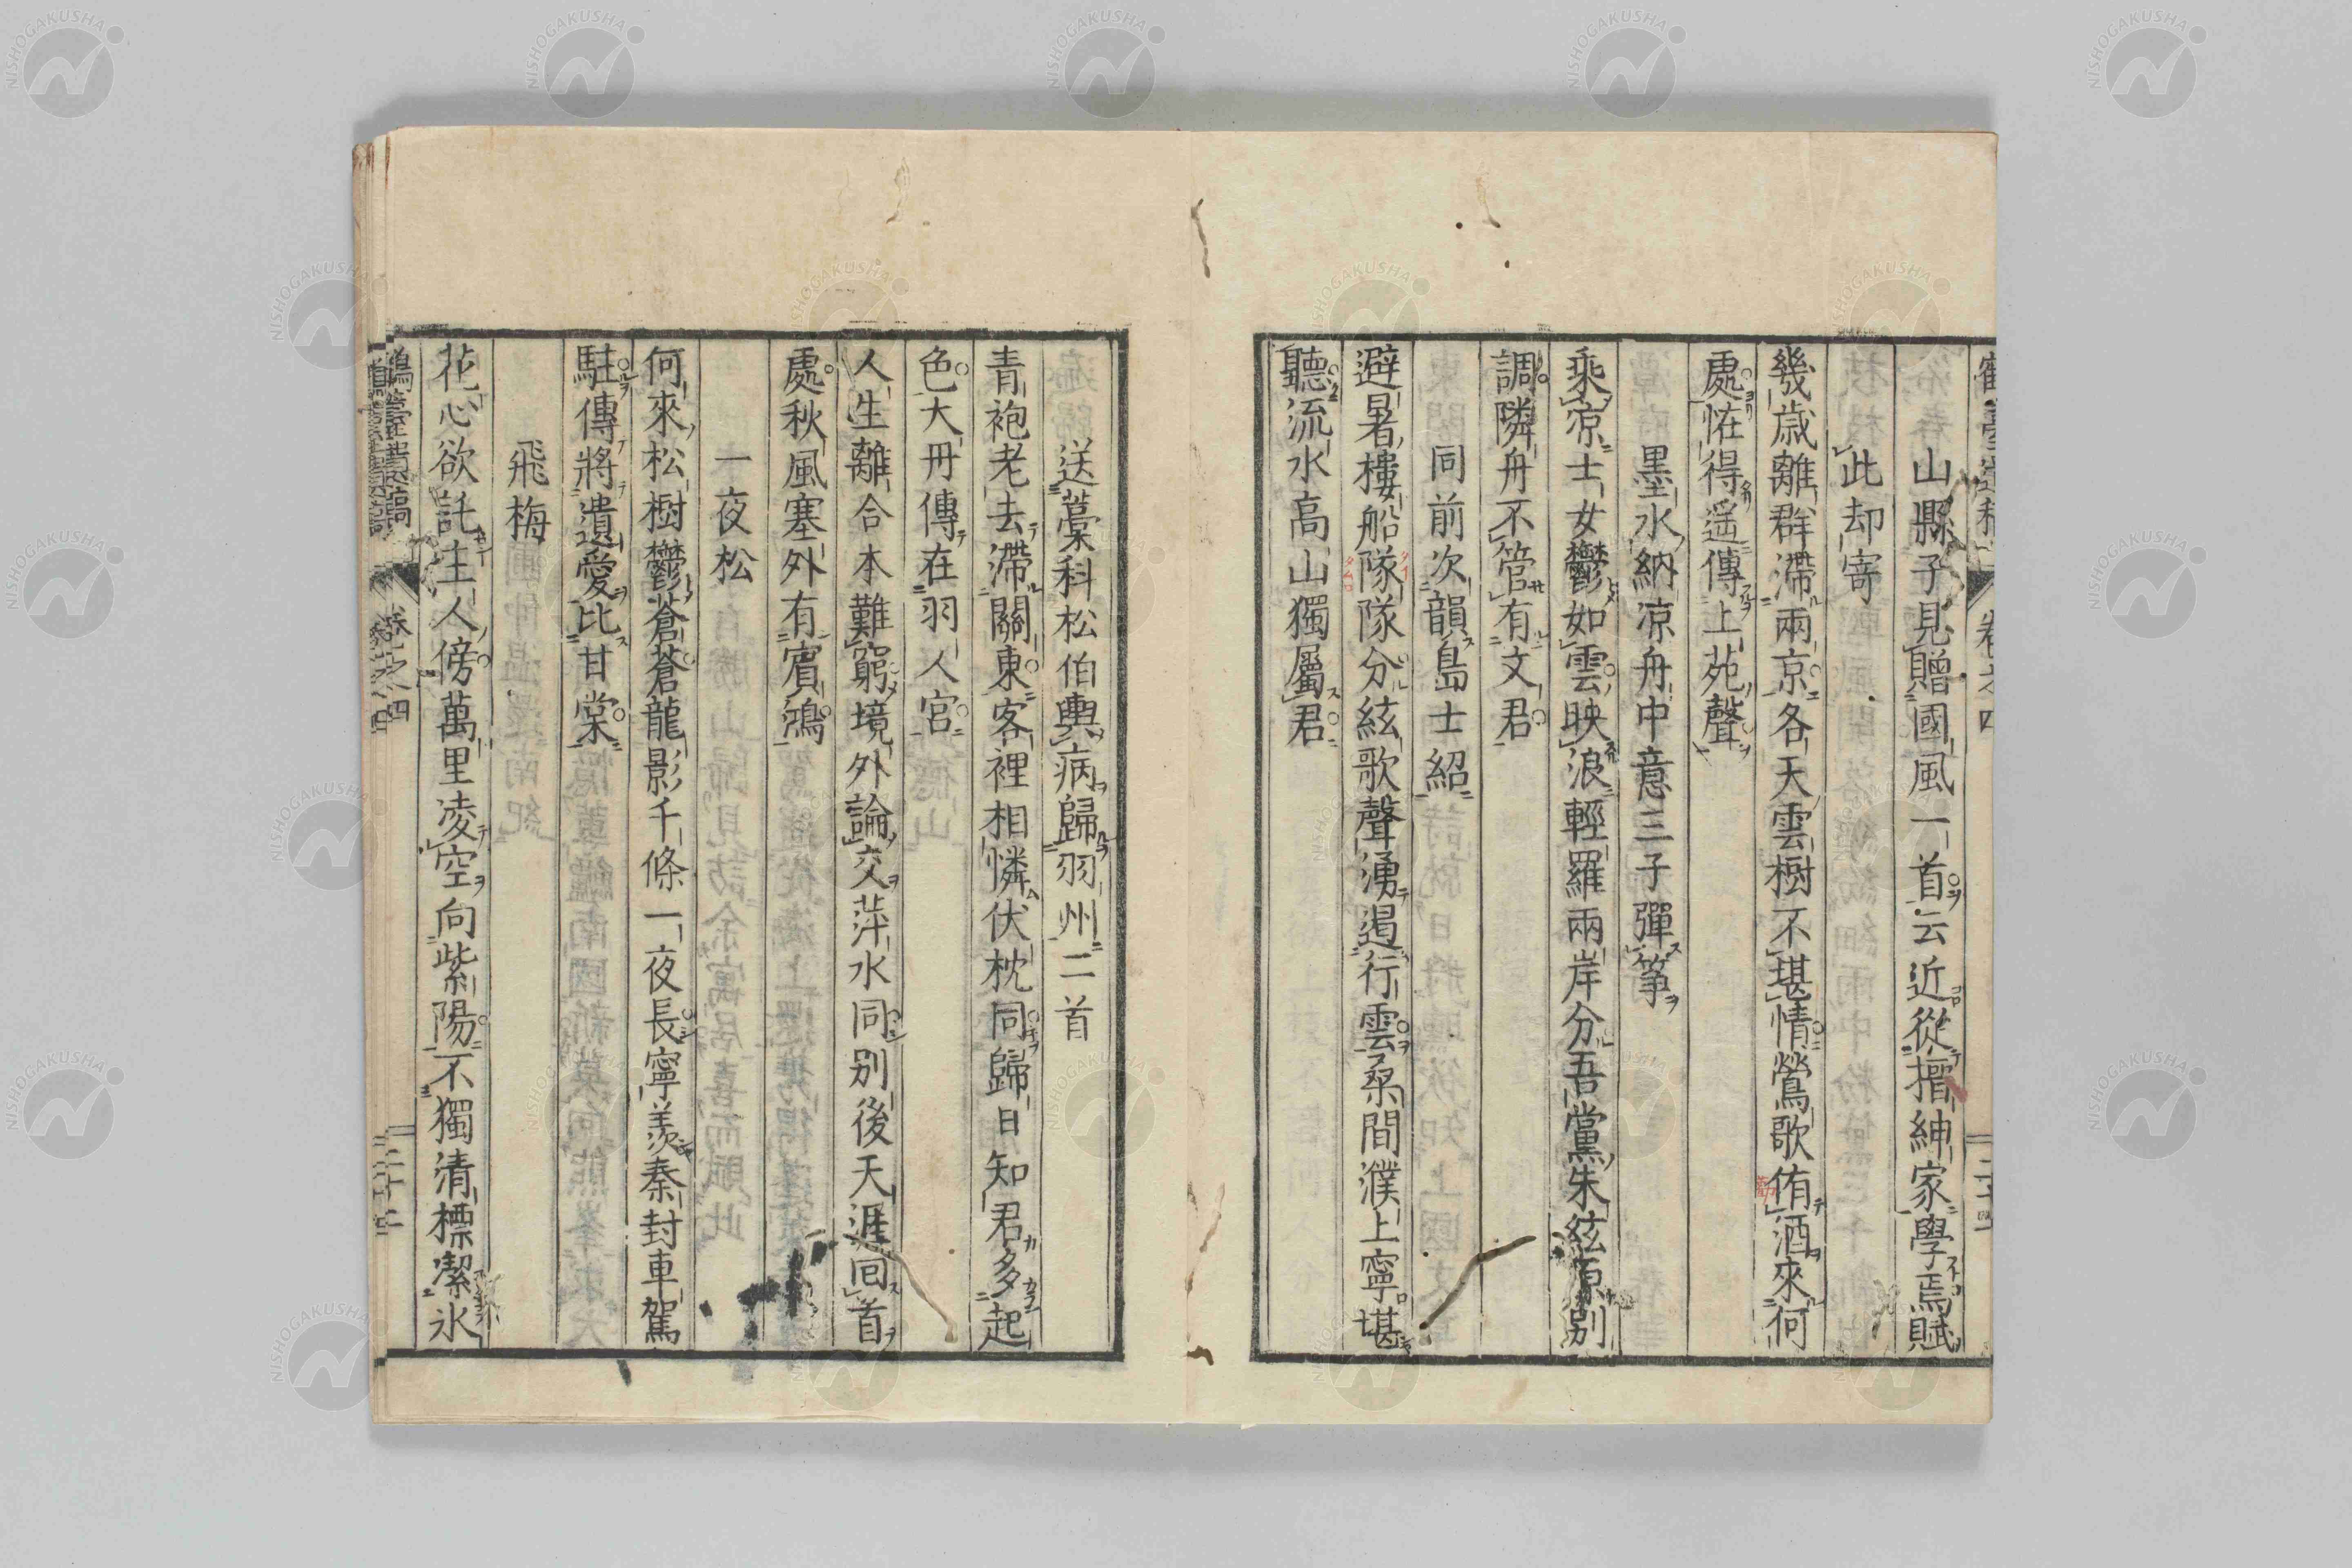 山縣子見贈國風一首云近從搢紳家學焉賦
此却寄
幾歳離群滯兩京各天雲樹不堪情鶯歌侑酒來何
處恠得遥傳上苑聲
墨水納凉舟中意三子彈箏
乘凉士女鬱如雲映浪輕羅兩岸分吾黨朱絃原別
調隣舟不管有文君
同前次韻島士紹
避暑樓船隊隊分絃歌聲湧遏行雲桑間濮上寧堪
聽流水高山獨屬君
送藁科松伯輿病歸羽州二首
青袍老去滯關東客裡相憐伏枕同歸日知君多起
色大丹傳在羽人宮
人生離合本難窮境外論交萍水同別後天涯回首
處秋風塞外有賓鴻
一夜松
何來松樹鬱蒼蒼龍影千條一夜長寧羨秦封車駕
駐傳將遺愛比甘棠
飛梅
花心欲託主人傍萬里凌空向紫陽不獨清標潔氷
鶴臺遺稿
卷之四
二十二
NISHOGAKUSHA